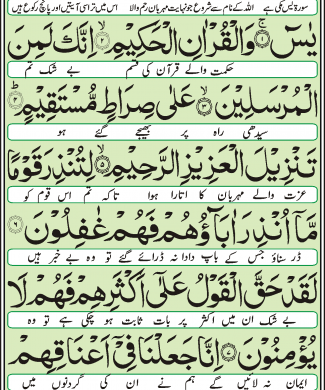 سورۃ یٰسٓ مکی ہے اللہ کے نام سے شروع جو نہایت مہربان رحم والا اس میں تراسی آیتیں اور پانچ رکوع ہیں
يٰسٓ ۚ﴿۱﴾ وَالْقُرْاٰنِ الْحَكِيْمِ ۙ﴿۲﴾ اِنَّكَ لَمِنَ
حکمت والے قرآن کی قسم بے شک تم
الْمُرْسَلِيْنَ ۙ﴿۳﴾ عَلٰى صِرَاطٍ مُّسْتَقِيْمٍ ؕ﴿۴﴾
سیدھی راہ پر بھیجے گئے ہو
تَنْزِيْلَ الْعَزِيْزِ الرَّحِيْمِ ۙ﴿۵﴾ لِتُنْذِرَ قَوْمًا
عزت والے مہربان کا اتارا ہوا تاکہ تم اس قوم کو
مَّاۤ اُنْذِرَ اٰبَآؤُهُمْ فَهُمْ غٰفِلُوْنَ ﴿۶﴾
ڈر سناؤ جس کے باپ دادا نہ ڈرائے گئے تو وہ بے خبر ہیں
لَقَدْ حَقَّ الْقَوْلُ عَلٰۤى اَكْثَرِهِمْ فَهُمْ لَا
بے شک ان میں اکثر پر بات ثابت ہو چکی ہے تو وہ
يُؤْمِنُوْنَ ﴿۷﴾ اِنَّا جَعَلْنَا فِيْۤ اَعْنَاقِهِمْ
ایمان نہ لائیں گے ہم نے ان کی گردنوں میں